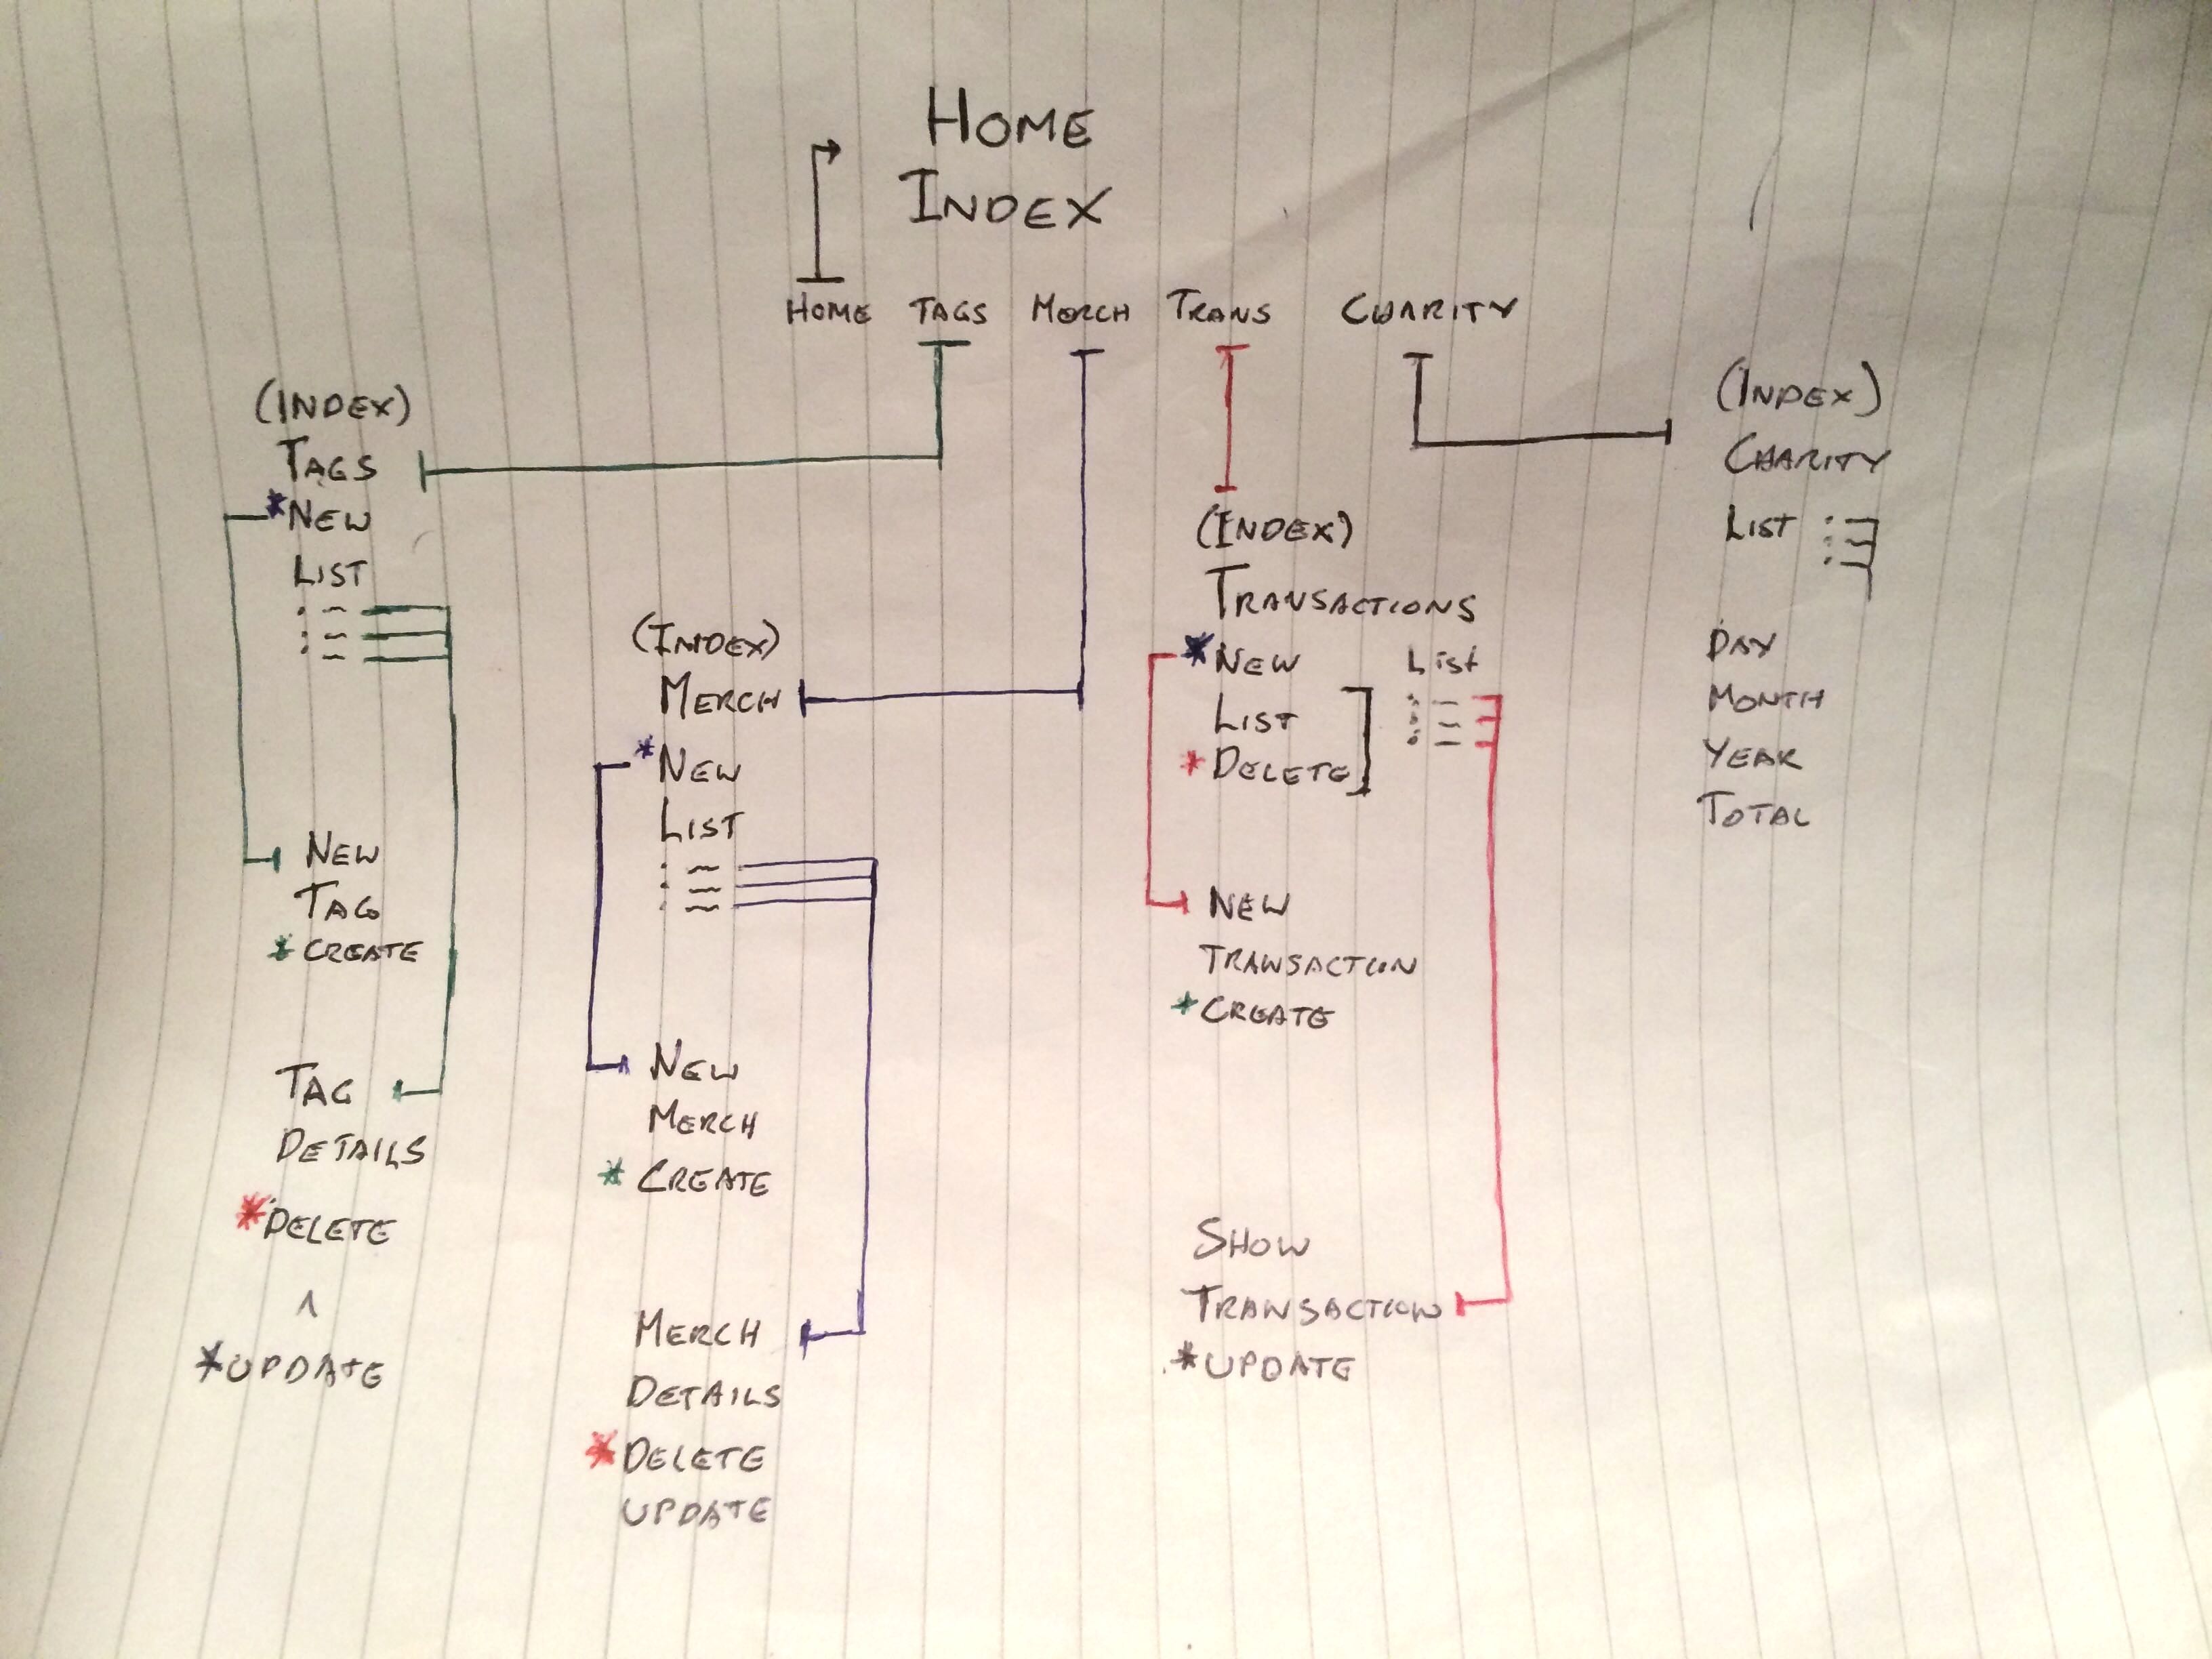 HOME
INDEX
HOME TAGS MERCH TRANS CHARITY
(INDEX)
TAGS
*NEW
LIST
NEW
TAG
*CREATE
TAG
DETAILS
*DELETE
*UPDATE
(INDEX)
MERCH
*NEW
LIST
NEW
MERCH
*CREATE
MERCH
DETAILS
*DELETE
UPDATE
(INDEX)
TRANSACTIONS
*NEW
LIST
*DELETE
List
NEW
TRANSACTION
*CREATE
SHOW
TRANSACTION
*UPDATE
(INDEX)
CHARITY
LIST
DAY
MONTH
YEAR
TOTAL